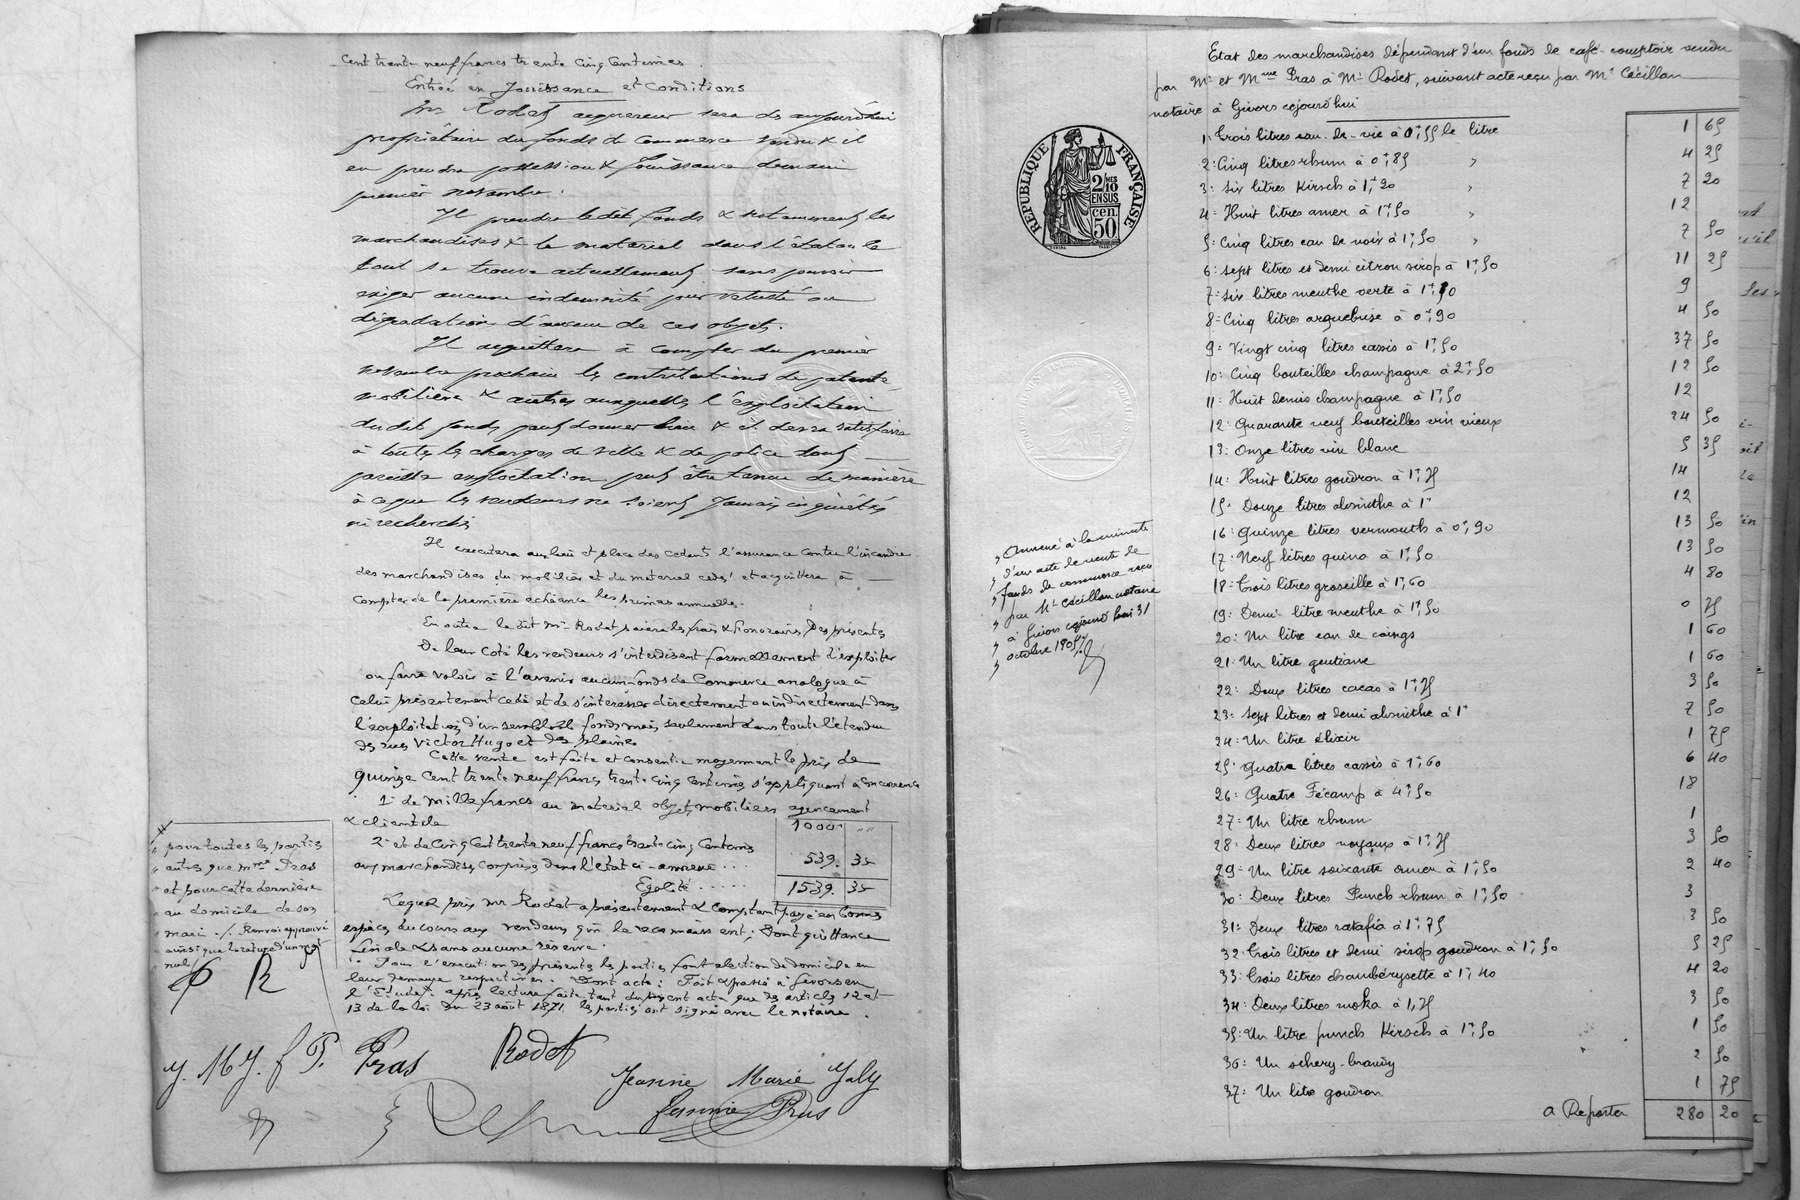 Cent trente neuf francs trente cinq Centimes.
Entrée en Jouissance et Conditions
Mr Rodet acquereur sera dès aujourd'hui
propriétaire du fonds de commerce vendu & il
en prendra possession & Jouissance demain
premier novembre.
Il prendra ledit fonds & notamment les
marchandises & le matériel dans l'état où le
tout se trouve actuellement sans pouvoir
exiger aucune indemnité pour vétusté ou
dégradation d'aucun de ces objets.
Il acquittera à compter du premier
novembre prochain les contributions de patente
mobilière & autres auxquelles l'exploitation
dudit fonds peut donner lieu & il devra satisfaire
à toutes les charges de ville & de police dont
pareille exploitation peut être tenue de manière
à ce que les vendeurs ne soient jamais inquiétés
ni recherchés
Il executera au lieu et place des cedants l'assurance contre l'incendie
des marchandises du mobilier et du materiel cedés et acquittera à
compter de la première echéance les primes annuelles.
En outre le dit Mr Rodet paiera les frais & honoraires des présentes
De leur coté les vendeurs s'interdisent formellement d'exploiter
ou faire valoir à l'avenir aucun fonds de Commerce analogue à
celui présentement cedé et de s'intéresser directement ou indirectement dans
l'exploitation d'un semblable fonds mais seulement dans toute l'étendue
des rues Victor Hugo et des plaines
Cette vente est faite et consentie moyennant le prix de
quinze cent trente neuf francs trente cinq centimes s'appliquant à concurrence
1° de Mille francs au materiel objets mobiliers agencement
& clientele 1000 "
2° et de Cinq Cent trente neuf francs trente cinq Centimes
aux marchandises comprises dans l'état ci-annexé .. 539. 35
Egalité ..... 1539. 35
Lequel prix Mr Rodet a présentement & comptant payé en bonnes
espèces du cours aux vendeurs qui le reconnaissent; Dont quittance
finale & sans aucune réserve.
Pour l'execution des présentes les parties font election de domicile en
leur demeure respective. Dont acte: Fait & passé à Givors en
l'Etude: après lecture faite tant du présent acte que des articles 12 et
13 de la loi du 23 août 1871 les parties ont signé avec le notaire.
" pour toutes les parties
" autres que Mme Pras
" et pour cette dernière
" au domicile de son
" mari ./. Renvoi approuvé
" ainsi que la rature d'un mot
" nul
P R
J. M J. f P. Pras Rodet
Jeanne Marie Jaly
femme Pras
Etat des marchandises dépendant d'un fonds de café-comptoir vendu
par Mr et Mme Pras à Mr Rodet, suivant acte reçu par Me Cécillon
notaire à Givors cejourd'hui
RÉPUBLIQUE FRANÇAISE
2/10 EN SUS
50 cen.
1: Trois litres eau-de-vie à 0f,55 le litre 1 65
2: Cinq litres rhum à 0f,85 " 4 25
3: Six litres Kirsch à 1f,20 " 7 20
4: Huit litres amer à 1f,50 " 12
5: Cinq litres eau de noix à 1f,50 " 7 50
6: Sept litres et demi citron sirop à 1f,50 11 25
7: Six litres menthe verte à 1f,50 9
8: Cinq litres arquebuse à 0f,90 4 50
9: Vingt cinq litres cassis à 1f,50 37 50
10: Cinq bouteilles champagne à 2f,50 12 50
11: Huit demis champagne à 1f,50 12
12: Quarante neuf bouteilles vin vieux 24 50
13: Onze litres vin blanc 5 35
14: Huit litres goudron à 1f,75 14
15: Douze litres absinthe à 1f 12
16: Quinze litres vermouth à 0f,90 13 50
17: Neuf litres quina à 1f,50 13 50
18: Trois litres groseille à 1f,60 4 80
19: Demi-litre menthe à 1f,50 0 75
20: Un litre eau de coings 1 60
21: Un litre gentiane 1 60
22: Deux litres cacao à 1f,75 3 50
23: Sept litres et demi absinthe à 1f 7 50
24: Un litre élixir 1 75
25: Quatre litres cassis à 1f,60 6 40
26: Quatre Fécamp à 4f,50 18
27: Un litre rhum 1
28: Deux litres noyaux à 1f,75 3 50
29: Un litre soixante amer à 1f,50 2 40
30: Deux litres Punch rhum à 1f,50 3
31: Deux litres ratafia à 1f,75 3 50
32: Trois litres et demi sirop goudron à 1f,50 5 25
33: Trois litres chambérysette à 1f,40 4 20
34: Deux litres moka à 1,75 3 50
35: Un litre punch Kirsch à 1f,50 1 50
36: Un schery-brandy 2 50
37: Un litre goudron 1 75
a Reporter 280 20
" Annexé à la minute
" d'un acte de vente de
" fonds de commerce reçu
" par Me Cécillon notaire
" à Givors cejourd'hui 31
" octobre 1905 ./.